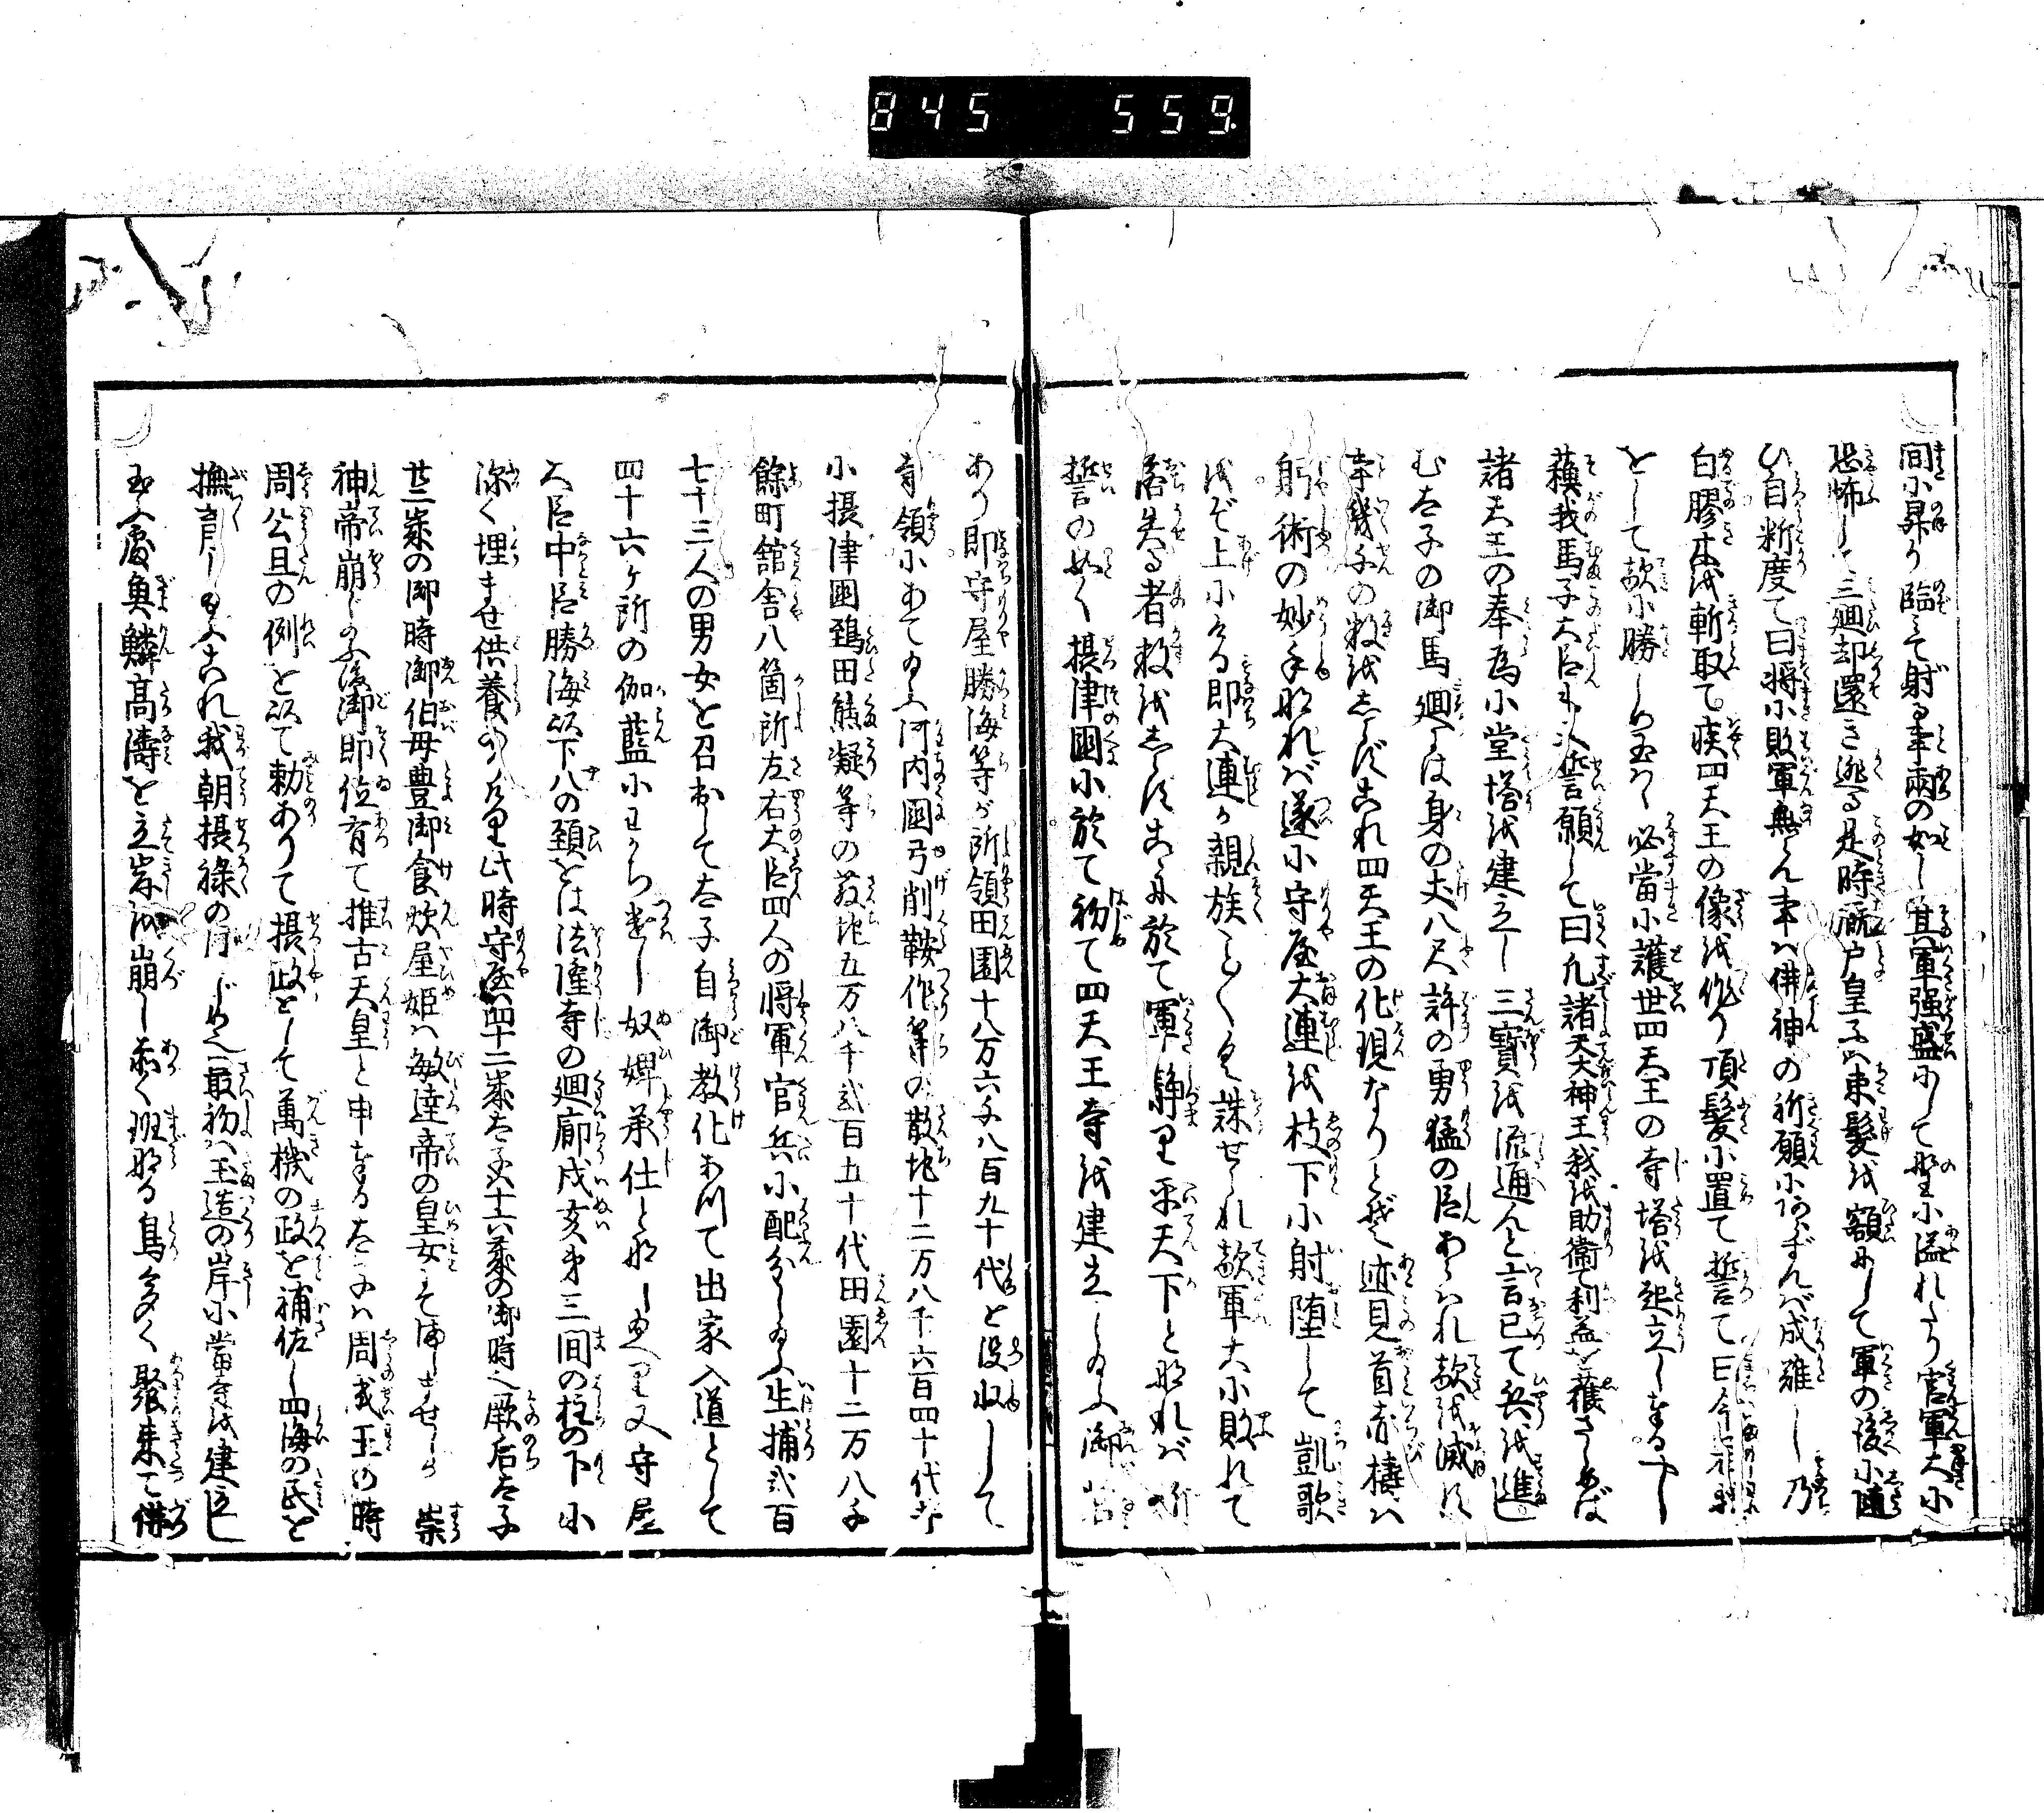 845 559
間に昇り臨て射る事雨の如し其軍强盛にして野に溢れたり官軍大に
恐怖して三廻却還き逃る是時厩戸皇子は束髪を額にして軍の後に随
ひ自忖度て曰将に敗軍無らん事は佛神の祈願にあらずんば成難し乃
白膠木を斬取て疾四天王の像を作り頂髪に置て誓て曰今
をして敵に勝しめ玉はゞ必當に護世四天王の寺塔を起立し奉るべし
蘓我馬子大臣も又誓願して曰凡諸天大神王我を助衛て利益を獲さしめば
諸天王の奉為に堂塔を建立し三寳を流通んと言已て兵を進
む太子の御馬廻には身の丈八尺許の勇猛の臣あらはれ敵を滅す
事幾千の数をしらず是れ四天王の化現なりとぞ迹見首赤梼は
射術の妙手なれば遂に守屋大連を枝下に射堕して凱歌
をぞ上にける即大連か親族ことごとく誅せられ敵軍大に敗れて
落失る者数をしらずこゝに於て軍静り平天下となれば
誓の如く摂津國に於て初て四天王寺を建立し給ふ御
あり即守屋勝海等が所領田園十八万六千八百九十代を没収して
寺領にあて給ふ河内國弓削鞍作等の散地十二万八千六百四十代
に摂津國鵄田熊凝等の散地五万八千弐百五十代田園十二万八千
餘町舘舎八箇所左右大臣四人の将軍官兵に配分し給ふ生捕弐百
七十三人の男女を召出して太子自御教化あつて出家入道として
四十六ヶ所の伽藍にわかち遣し奴婢承仕となし給へり又守屋
大臣中臣勝海以下八の頚をは法隆寺の廻廊戌亥第三間の柱の下に
深く埋ませ供養の給へり此時守屋四十二歳太子十六歳の御時也厥后太子
廿二歳の御時御伯母豊御食炊屋姫は敏達帝の皇女にてましませしか崇
神帝崩じ給ふ後御即位有て推古天皇と申奉る太子は周武王の時
周公旦の例を以て勅ありて摂政として萬機の政を補佐し四海の民を
撫育し給ふこれ我朝摂禄の濫觴也最初は玉造の岸に當寺を建立し
玉ふ處魚鱗高濤を立岸を崩しあかく斑なる鳥多く聚来て佛